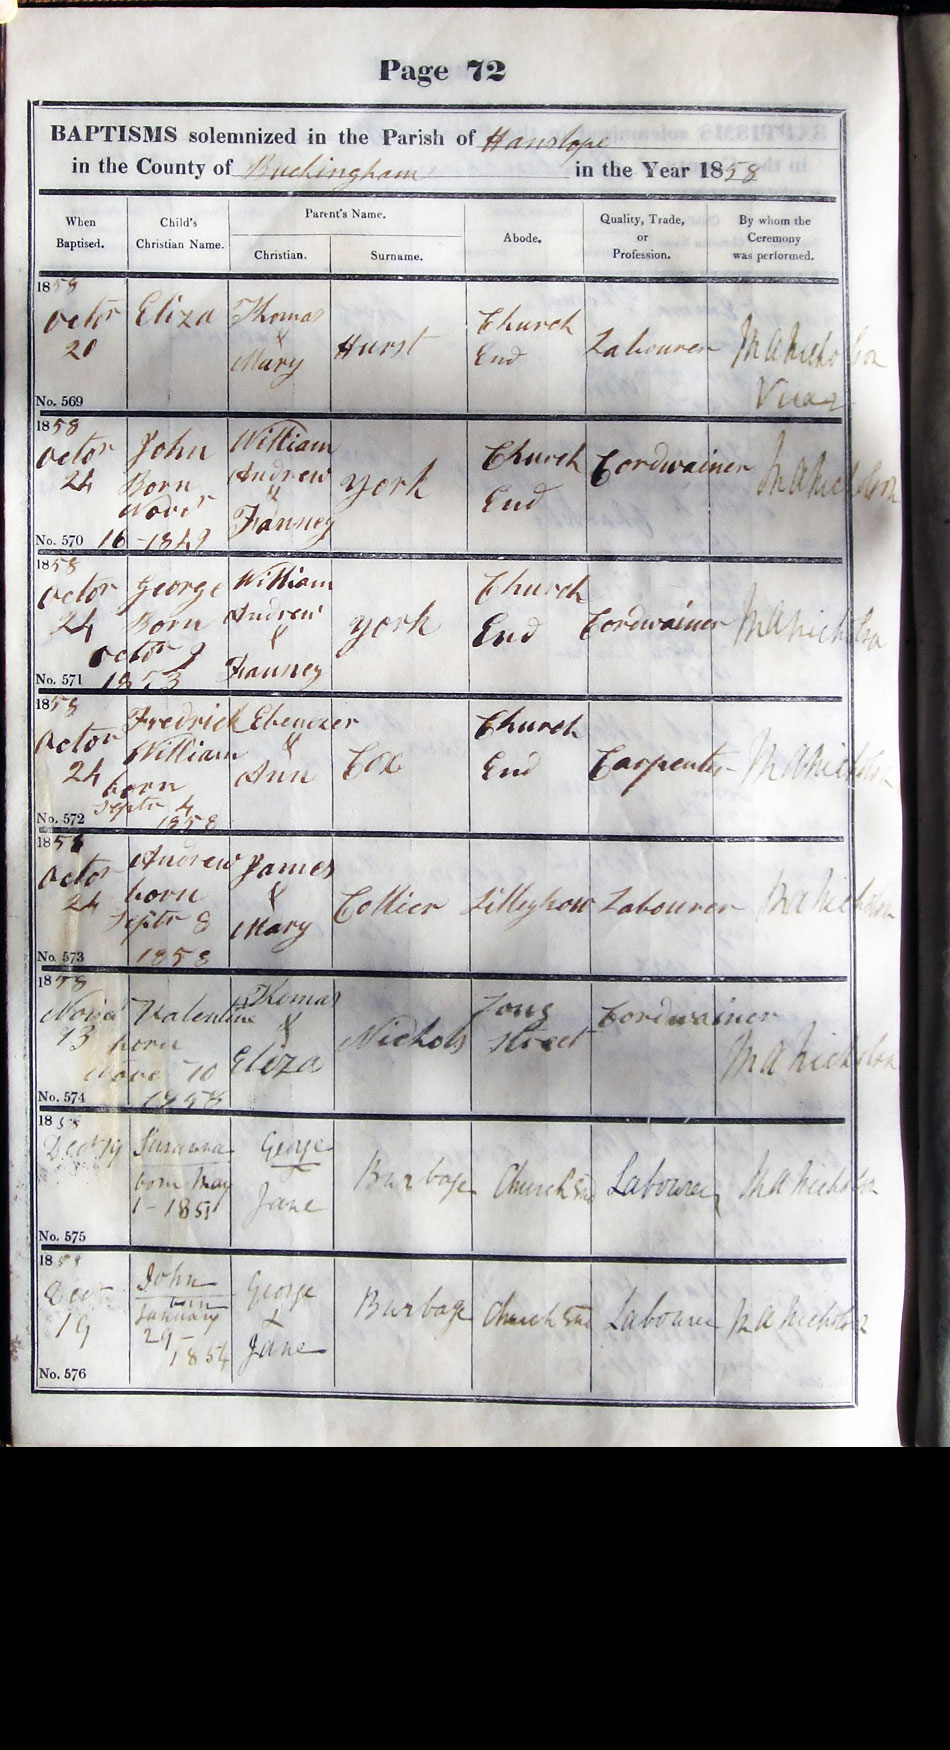 Page 72
BAPTISMS solemnized in the Parish of Hanslope
in the County of Buckingham in the Year 1858
When Baptised.
Child's Christian Name.
Parent's Name.
Christian.
Surname.
Abode.
Quality, Trade, or Profession.
By whom the Ceremony was performed.
1858
Octor
20
Eliza
Thomas
&
Mary
Hurst
Church
End
Labourer
M A Nicholson
Vicar
No. 569
1858
Octor
24
John
Born
Novr
16 - 1849
William
Andrew
&
Fanney
York
Church
End
Cordwainer
M A Nicholson
No. 570
1858
Octor
24
George
Born
Octor 9
1853
William
Andrew
&
Fanney
York
Church
End
Cordwainer
M A Nicholson
No. 571
1858
Octor
24
Fredrick
William
born
Septr 4
1858
Ebenezer
&
Ann
Cox
Church
End
Carpenter
M A Nicholson
No. 572
1858
Octor
24
Andrew
born
Septr 8
1858
James
&
Mary
Collier
Lilleyhow
Labourer
M A Nicholson
No. 573
1858
13
Valentine
born
10
1858
Thomas
&
Eliza
Nichols
Long
Street
Cordwainer
M A Nicholson
No. 574
1858
Decr 19
Susanna
born May
1 - 1851
George
Jane
Burbage
Church End
Labourer
M A Nicholson
No. 575
1858
Decr
19
John
born
January
29 -
1854
George
&
Jane
Burbage
Church End
Labourer
M A Nicholson
No. 576